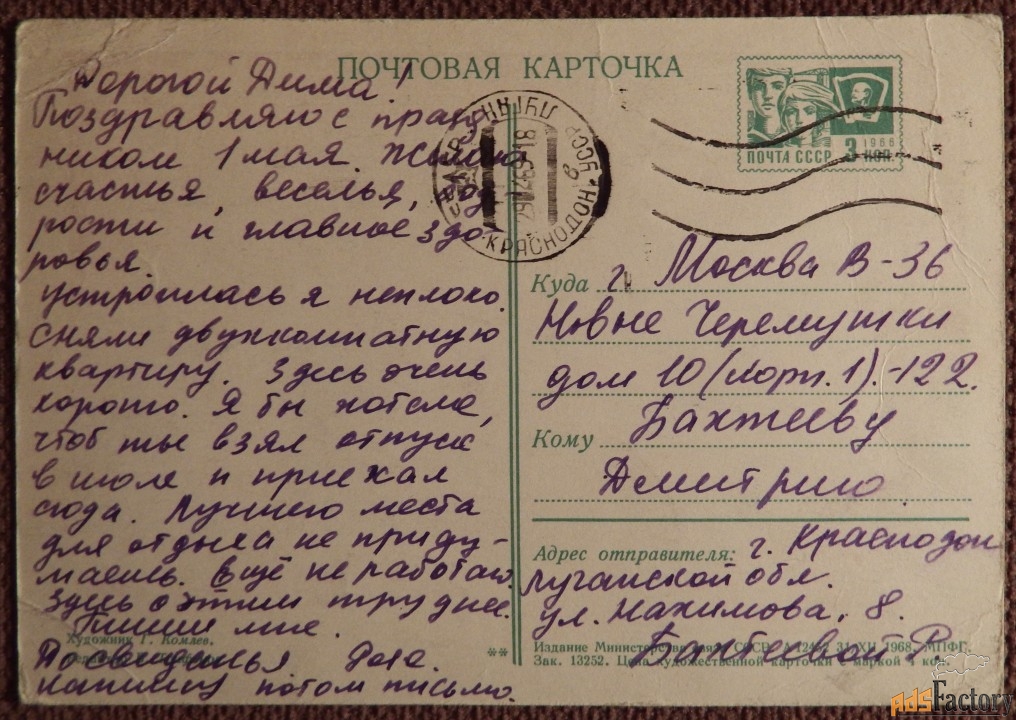 ПОЧТОВАЯ КАРТОЧКА
Дорогой Дима!
Поздравляю с празд
ником 1 мая. Желаю
счастья, веселья, бод
рости и главное здо
ровья.
устроилась я неплохо.
сняли двухкомнатную
квартиру. Здесь очень
хорошо. Я бы хотела,
чтоб ты взял отпуск
в июле и приехал
сюда. Лучшего места
для отдыха не приду-
маешь. Ещё не работаю.
Здесь с этим труднее.
Пиши мне.
До свиданья Роза.
напишу потом письмо.
Художник Г. Комлев.
**
ПОЧТА СССР 3 коп.
1966
КРАСНОДОН
СССР
Куда г. Москва В-36
Новые Черемушки
дом 10 (корп. 1).-122.
Кому Бахтееву
Дмитрию
Адрес отправителя: г. Краснодон
Луганской обл.
ул. Нахимова, 8.
Издание Министерства связи СССР. 31/XII 1968. МПФГ.
Зак. 13252. Цена художественной карточки с маркой 4 коп.
AdsFactory